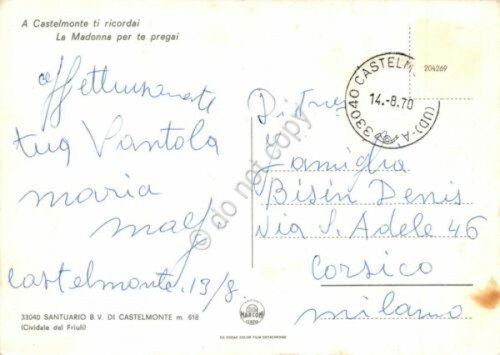 A Castelmonte ti ricordai
La Madonna per te pregai
affettuosamente
tua
maria
Castelmonte 13/8
33040 SANTUARIO B. V. DI CASTELMONTE m. 618
(Cividale del Friuli)
204269
33040 CASTELMO (UD)-A
14.-8.70
famiglia
Bisin Denis
via S. Adele 46
Corsico
milano
© do not copy